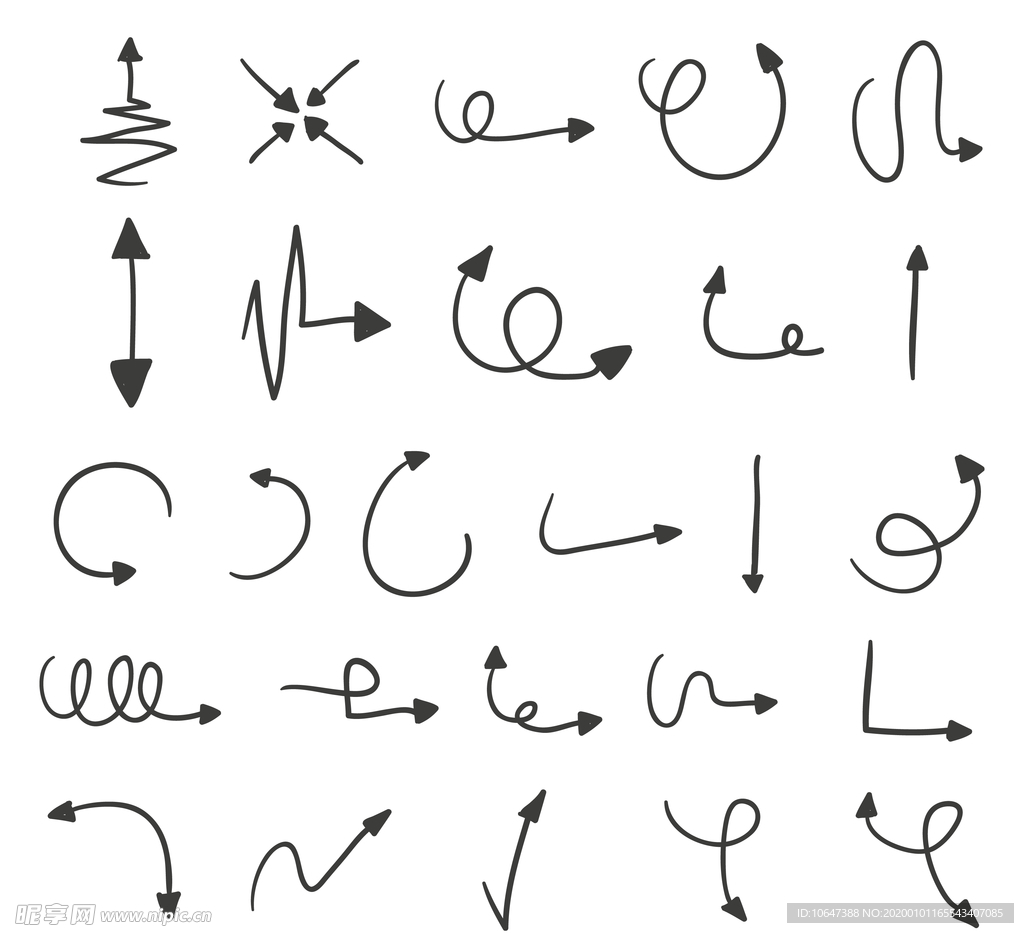 昵享网 www.nipic.cn
ID:10647388 NO:20200101165543407085